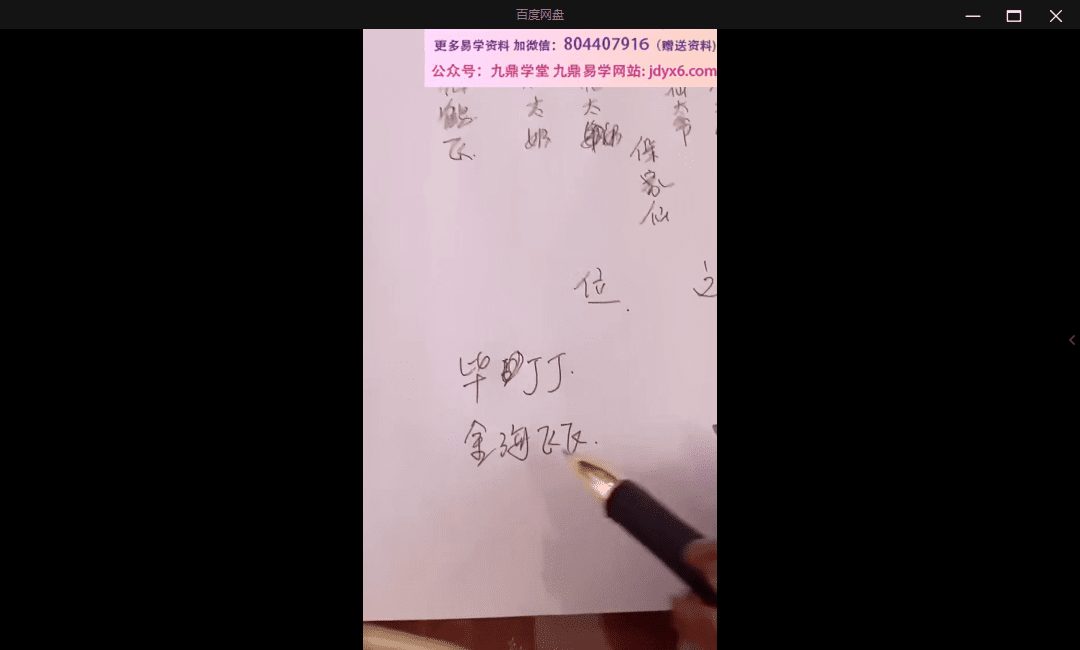 百度网盘
更多易学资料 加微信：804407916（赠送资料)
公众号：九鼎学堂 九鼎易学网站: jdyx6.com
飞.
大
奶
大
奶
仙
大
保
家
仙
位.
这
毕 丁丁.
金海飞飞.